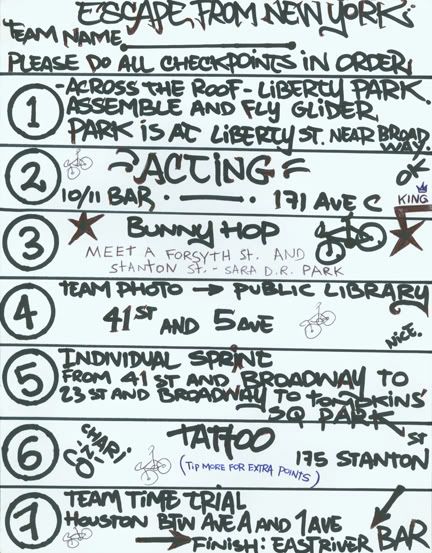 ESCAPE FROM NEW YORK
TEAM NAME
PLEASE DO ALL CHECKPOINTS IN ORDER
1 -ACROSS THE ROOF- LIBERTY PARK.
ASSEMBLE AND FLY GLIDER
PARK IS AT LIBERTY ST. NEAR BROAD
WAY.
2 "ACTING"
OK
10/11 BAR 171 AVE C
KING
3 BUNNY HOP
MEET A FORSYTH ST. AND
STANTON ST. - SARA D.R. PARK
4 TEAM PHOTO → PUBLIC LIBRARY
41ST AND 5 AVE
NICE.
5 INDIVIDUAL SPRINT
FROM 41 ST AND BROADWAY TO
23 ST AND BROADWAY TO TOMPKINS
SQ PARK
6 TATTOO
175 STANTON ST
(TIP MORE FOR EXTRA POINTS)
7 TEAM TIME TRIAL
HOUSTON BTW AVE A AND 1 AVE
→ FINISH: EAST RIVER BAR